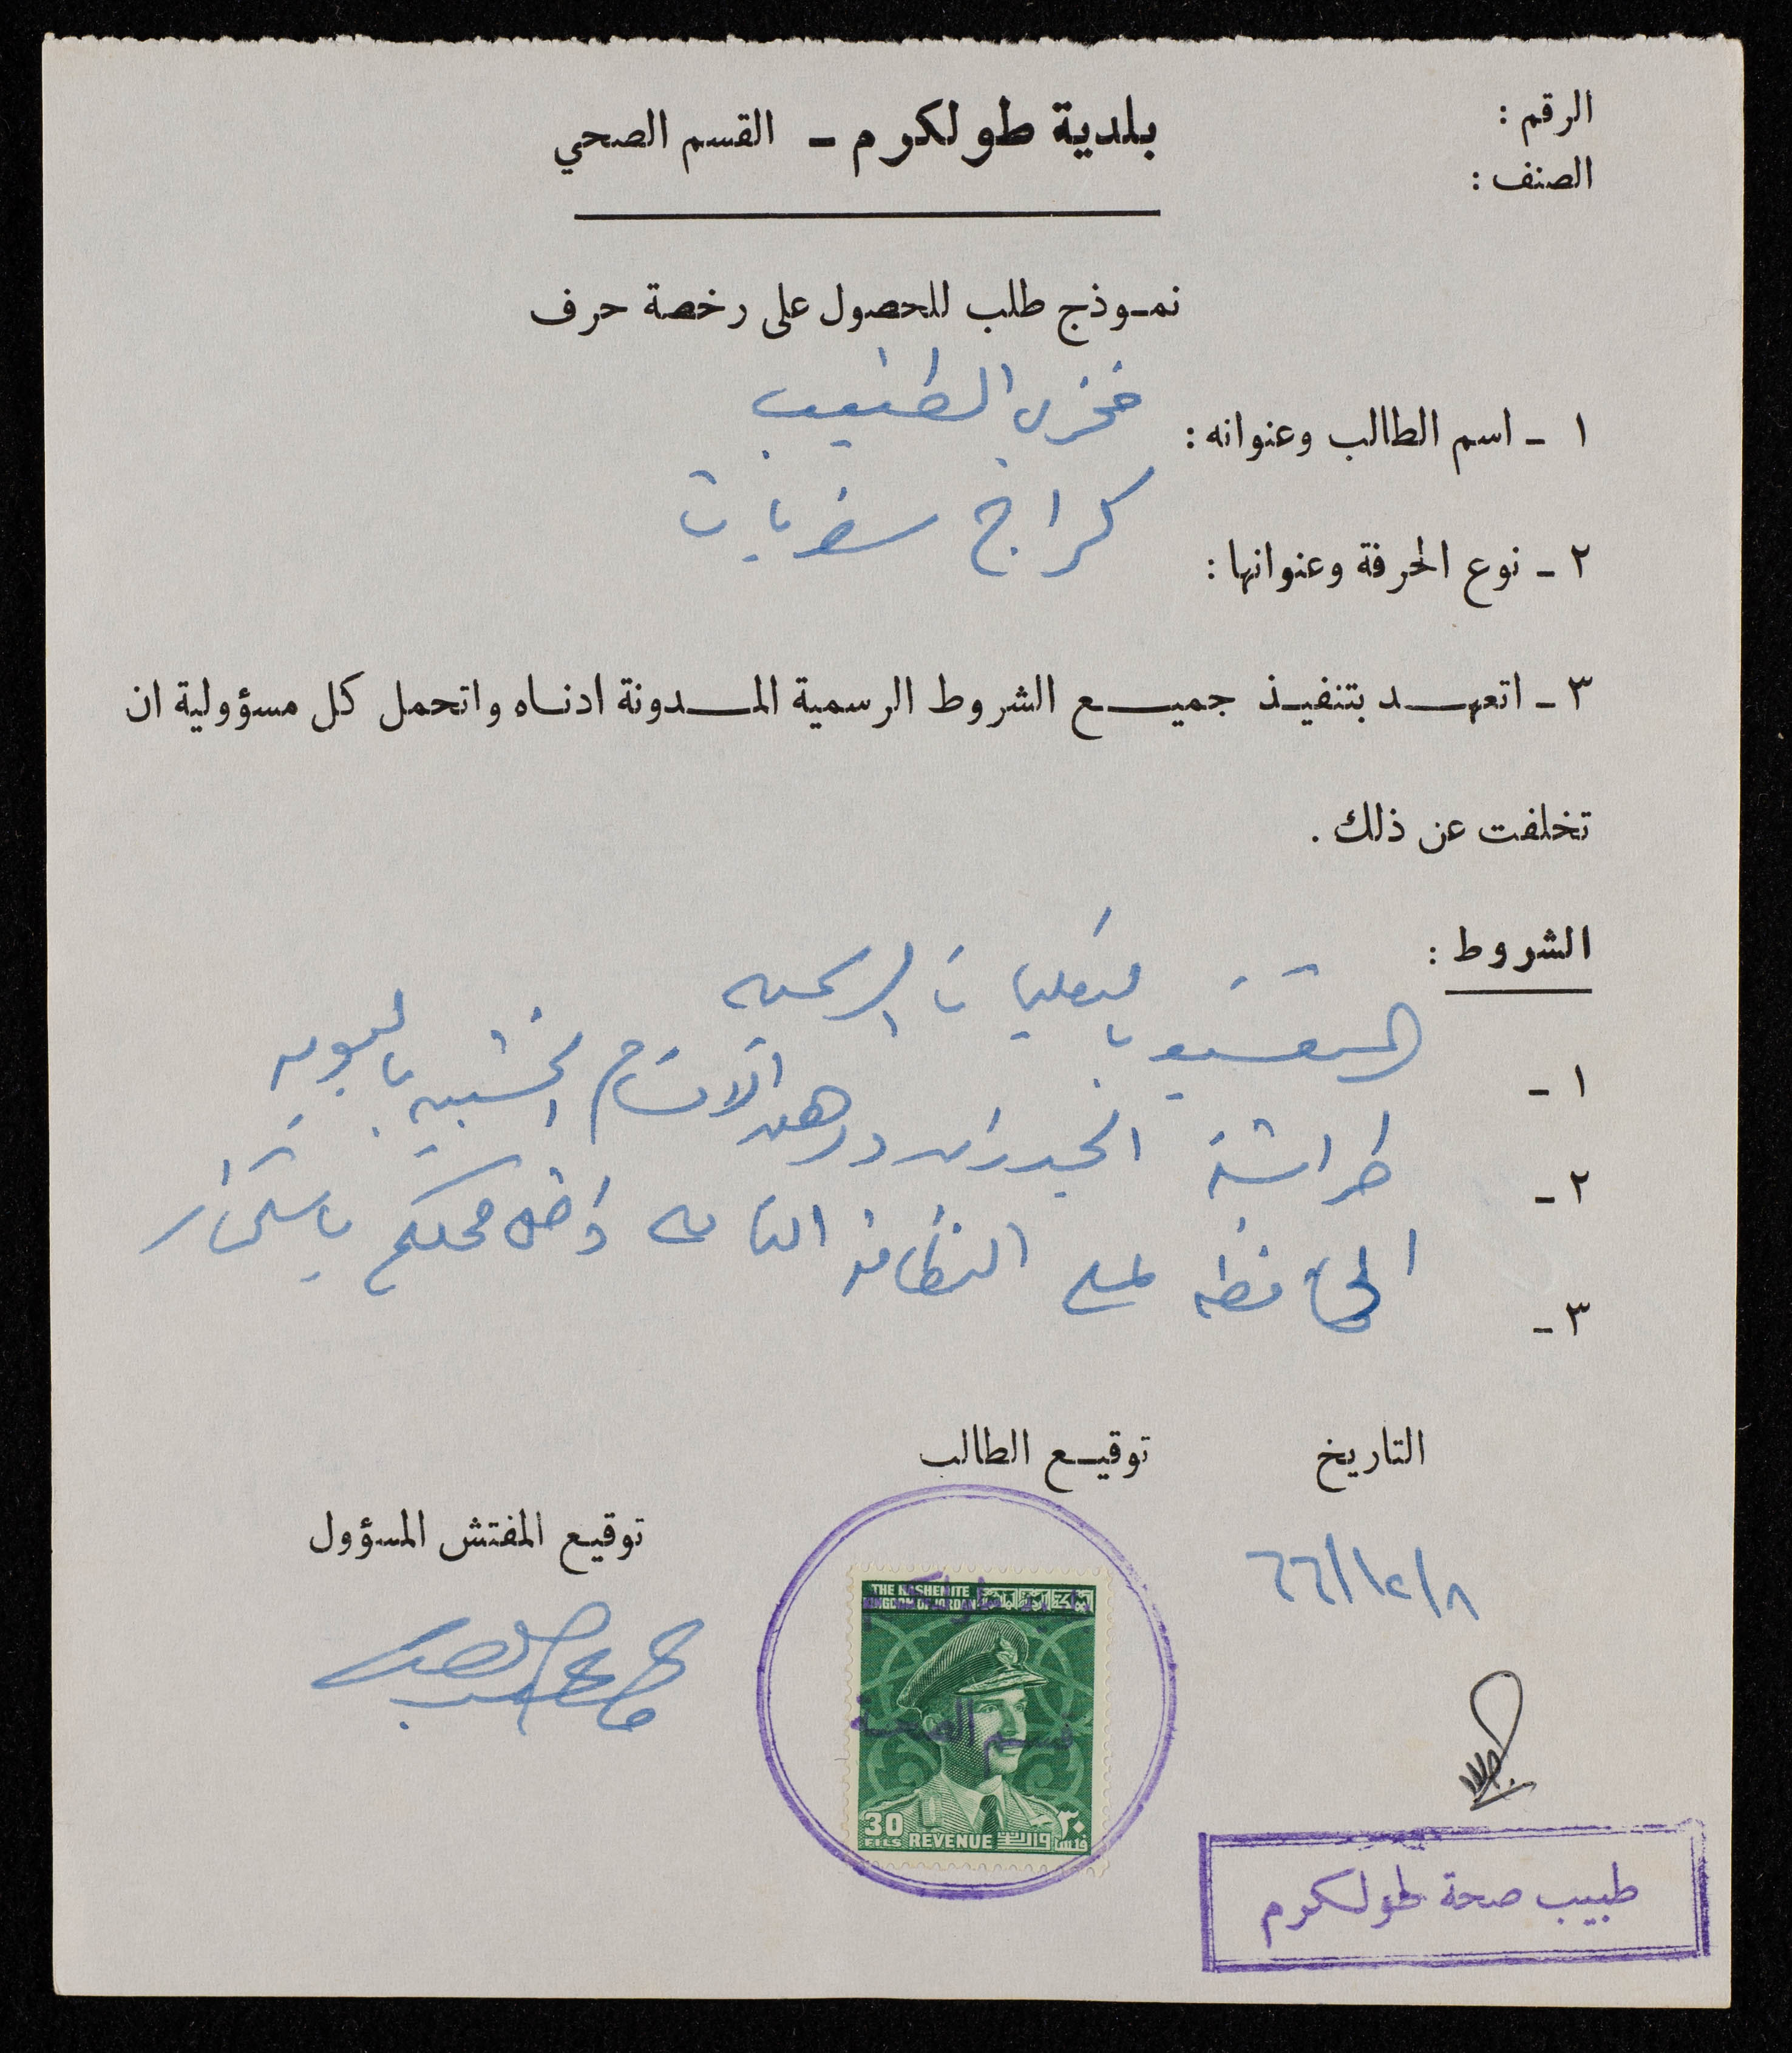 الرقم :
الصنف :
بلدية طولكرم - القسم الصحي
نموذج طلب للحصول على رخصة حرف
١ - اسم الطالب وعنوانه : فخري الطنيب
٢ - نوع الحرفة وعنوانها : كراج سفريات
٣ - اتعهد بتنفيذ جميع الشروط الرسمية المدونة ادناه واتحمل كل مسؤولية ان
تخلفت عن ذلك .
الشروط :
١ - التقيد بالتعليمات الرسميه
٢ - طراشة الجدران ودهن الاقسام الخشبيه بالبويه
٣ - المحافظه على النظافه التامه داخل محلكم باستمرار
التاريخ
توقيع الطالب
توقيع المفتش المسؤول
٦٦/١٢/٨
THE HASHEMITE KINGDOM OF JORDAN
المملكة الاردنية الهاشمية
بلدية طولكرم
قسم الصحة
30 FILS REVENUE
٣٠ فلس واردات
طبيب صحة طولكرم